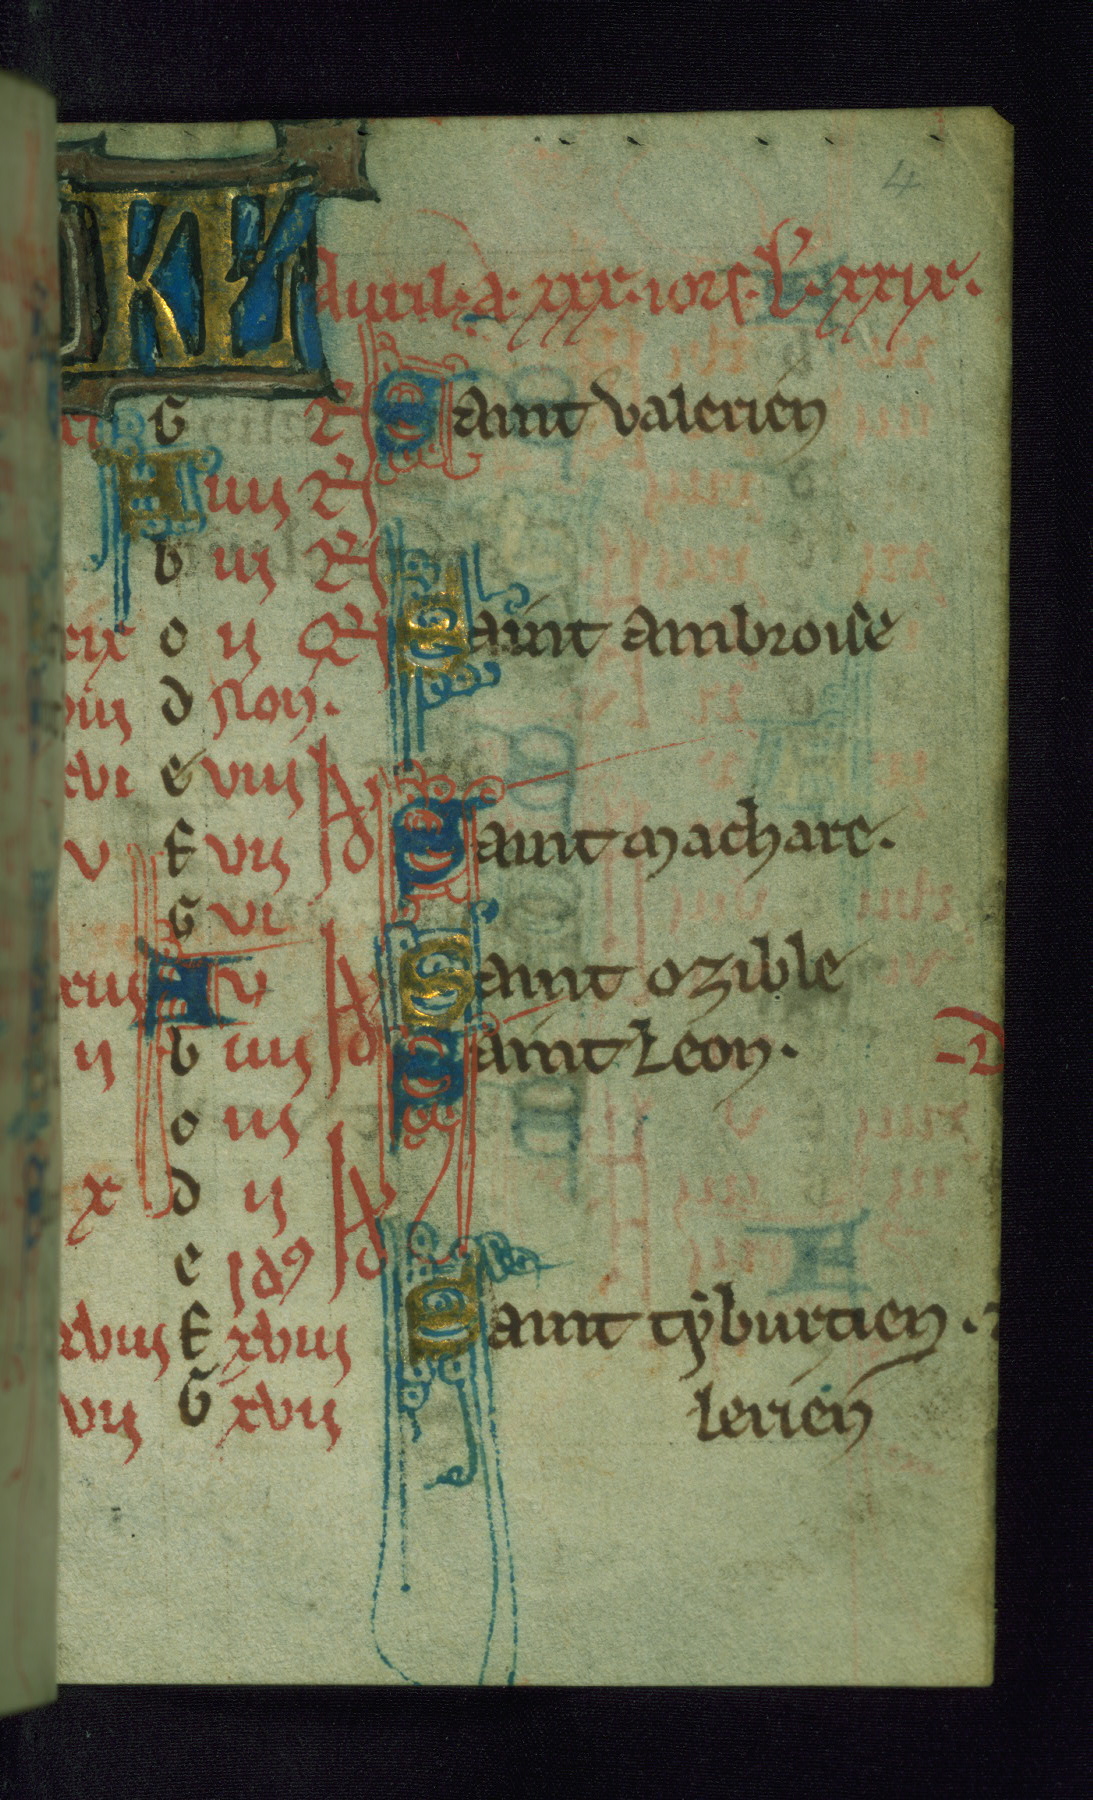 4
KL Auril. a. xxx. iors. L. xxix.
G Saint valerien
A iiii
b iii
xix c ii Saint ambroise
viii d Non.
xvi e viii
v f vii Saint machare.
G vi
xiii A v Saint ozible
ii b iiii Saint Leon.
c iii
x d ii
e id9
xviii f xviii Saint tyburcien.
vii G xvii lerien